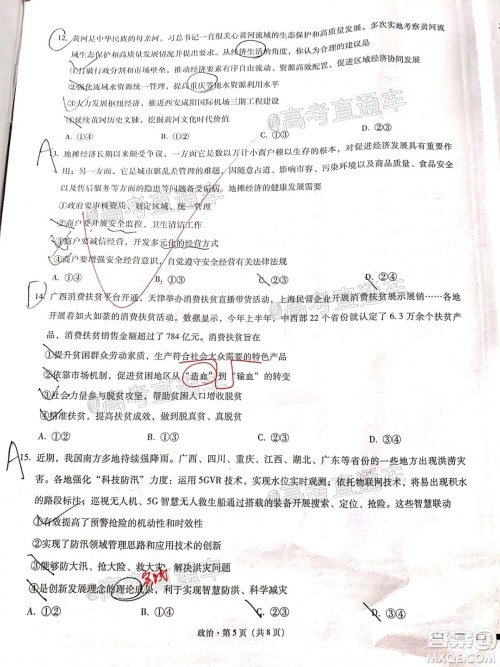 12. 黄河是中华民族的母亲河。习总书记一直很关心黄河流域的生态保护和高质量发展。多次实地考察黄河流
域生态保护和高质量发展情况并提出要求。从经济生活的角度，你认为合理的建议是
①打破行政分割和市场分割，推动经济要素自由流动，资源高效配置，促进区域经济协同发展
②强化流域水资源统一管理，提高重庆等地水资源利用水平
③大力发展枢纽经济，推进西安咸阳国际机场三期工程建设
④延续黄河历史文脉，挖掘黄河文化时代价值
A. ①④ B. ①③ C. ②③ D. ②④
A
13. 地摊经济长期以来颇受争议，一方面它是数以万计小商户赖以生存的来源，对促进经济发展具有重要作
用；另一方面，它是城市脏乱差管理的难题，因其可能带来影响市容市貌、污染环境以及商品质量、食品安全
以及售后服务等方面的隐患等问题备受诟病。地摊经济的健康发展需要
①政府要审核资质、划定区域、统一管理
②商户要开展安全监控、卫生清洁工作
③商户要诚信经营，开发多元化的经营方式
④商户要增强安全经营意识，自觉遵守安全经营有关法律法规
A. ①④ B. ①③ C. ②③ D. ②④
D
14. 广西消费扶贫平台开通，天津举办消费扶贫直播带货活动，上海民营企业开展消费扶贫展示展销……各地
开展了如火如荼的消费扶贫活动。数据显示，今年上半年，中西部 22 个省份就认定了 6.3 万余个扶贫产
品，消费扶贫销售金额超过了 784 亿元。消费扶贫旨在
①提升贫困群众劳动素质，生产符合社会大众需要的特色产品
②依靠市场机制，促进贫困地区从“造血”到“输血”的转变
③社会力量参与脱贫攻坚，帮助贫困人口增收脱贫
④精准扶贫，提升扶贫成效，做到真脱贫、真脱贫
A. ①② B. ①③ C. ②④ D. ③④
A
15. 近期，我国南方多地持续强降雨。广西、四川、重庆、江西、湖北、广东等省份的一些地方出现洪涝灾
害。各地强化“科技防汛”力度：运用5GVR技术，实现水位实时观测；依托物联网技术，实现积水点
的路段标注；巡视无人机、5G 智慧无人救生船通过搭载探测技术开展搜索、定位、抢险。这些智慧联动
①有效提高了预警抢险的机动性和时效性
②实现了防汛领域管理思路和应用技术的创新
③能够防大汛、抢大险、救大灾，解决洪灾问题
④是创新发展理念的理论成果，利于实现智慧防洪、科学减灾
实践
A. ①② B. ①③ C. ②④ D. ③④
政治·第 5 页（共 8 页）
@高考直通车
@高考直通车
@高考直通车
@高考直通车
答案圈
MXQE.COM